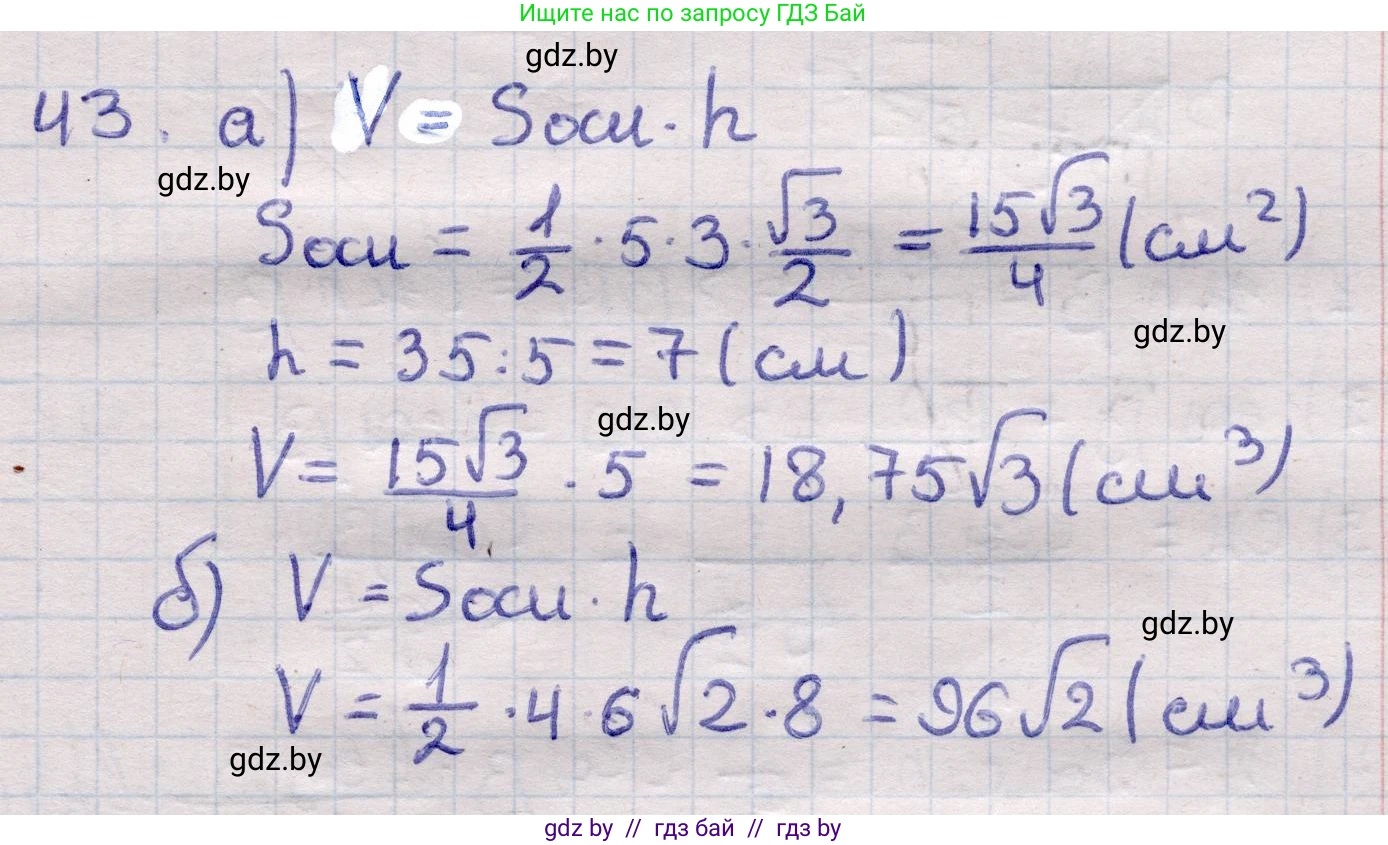 Ищите нас по запросу ГДЗ Бай
gdz.by
43. а) V = Sосн · h
gdz.by
Sосн = 1/2 · 5 · 3 · √3/2 = 15√3/4 (см²)
gdz.by
h = 35 : 5 = 7 (см)
gdz.by
V = 15√3/4 · 5 = 18,75√3 (см³)
б) V = Sосн · h
gdz.by
V = 1/2 · 4 · 6√2 · 8 = 96√2 (см³)
gdz.by
gdz by // гдз бай // гдз by